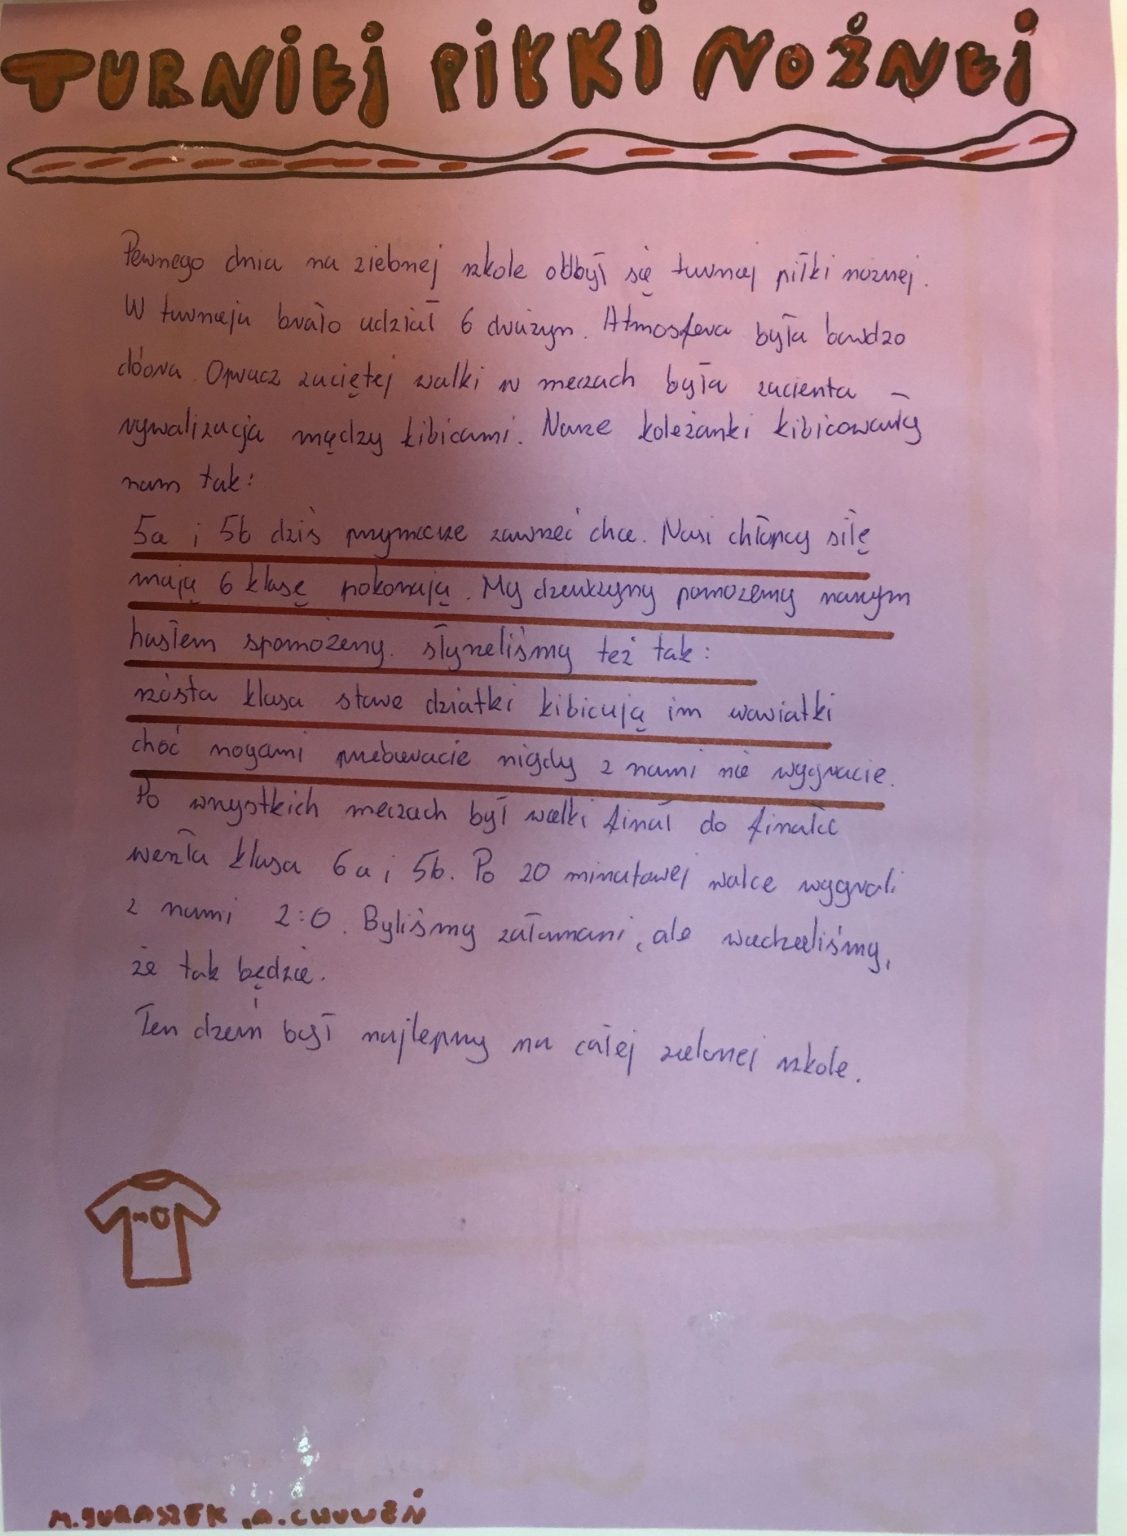 TURNIEJ PIŁKI NOŻNEJ
Pewnego dnia na zielonej szkole odbył się turniej piłki nożnej.
W turnieju brało udział 6 drużyn. Atmosfera była bardzo
dobra. Oprócz zaciętej walki w meczach była zacienta
rywalizacja mędzy kibicami. Nasze koleżanki kibicowały
nam tak:
5a i 5b dziś przymierze zawrzeć chce. Nasi chłopcy siłę
mają 6 klasę pokonają. My dziewczyny pomożemy naszym
hasłem spomożemy. słyszeliśmy też tak:
szósta klasa stare dziatki kibicują im wariatki
choć nogami przebieracie nigdy z nami nie wygracie.
Po wszystkich meczach był wielki finał do finału
weszła klasa 6a i 5b. Po 20 minutowej walce wygrali
z nami 2:0. Byliśmy załamani, ale wiedzieliśmy,
że tak będzie.
Ten dzień był najlepszy na całej zielonej szkole.
M. JURASZEK, A.